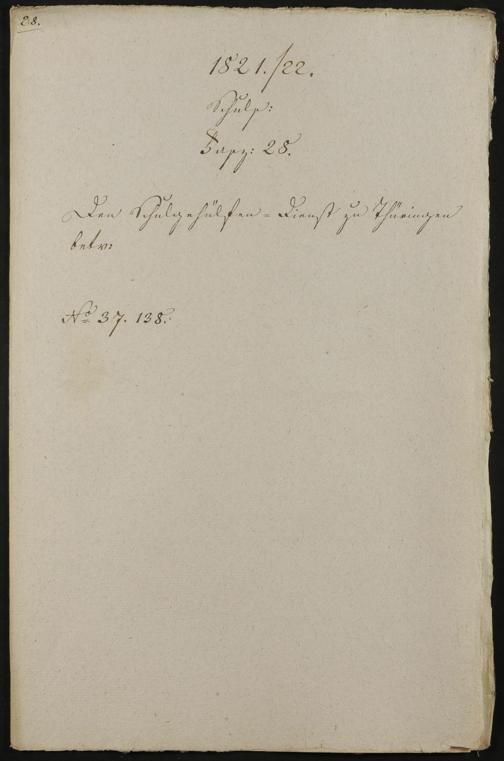 28.
1821./22.
Schule:
Fasz: 28.
Den Schulgehülfen-Dienst zu Thüringen
betr:
No 37. 138.